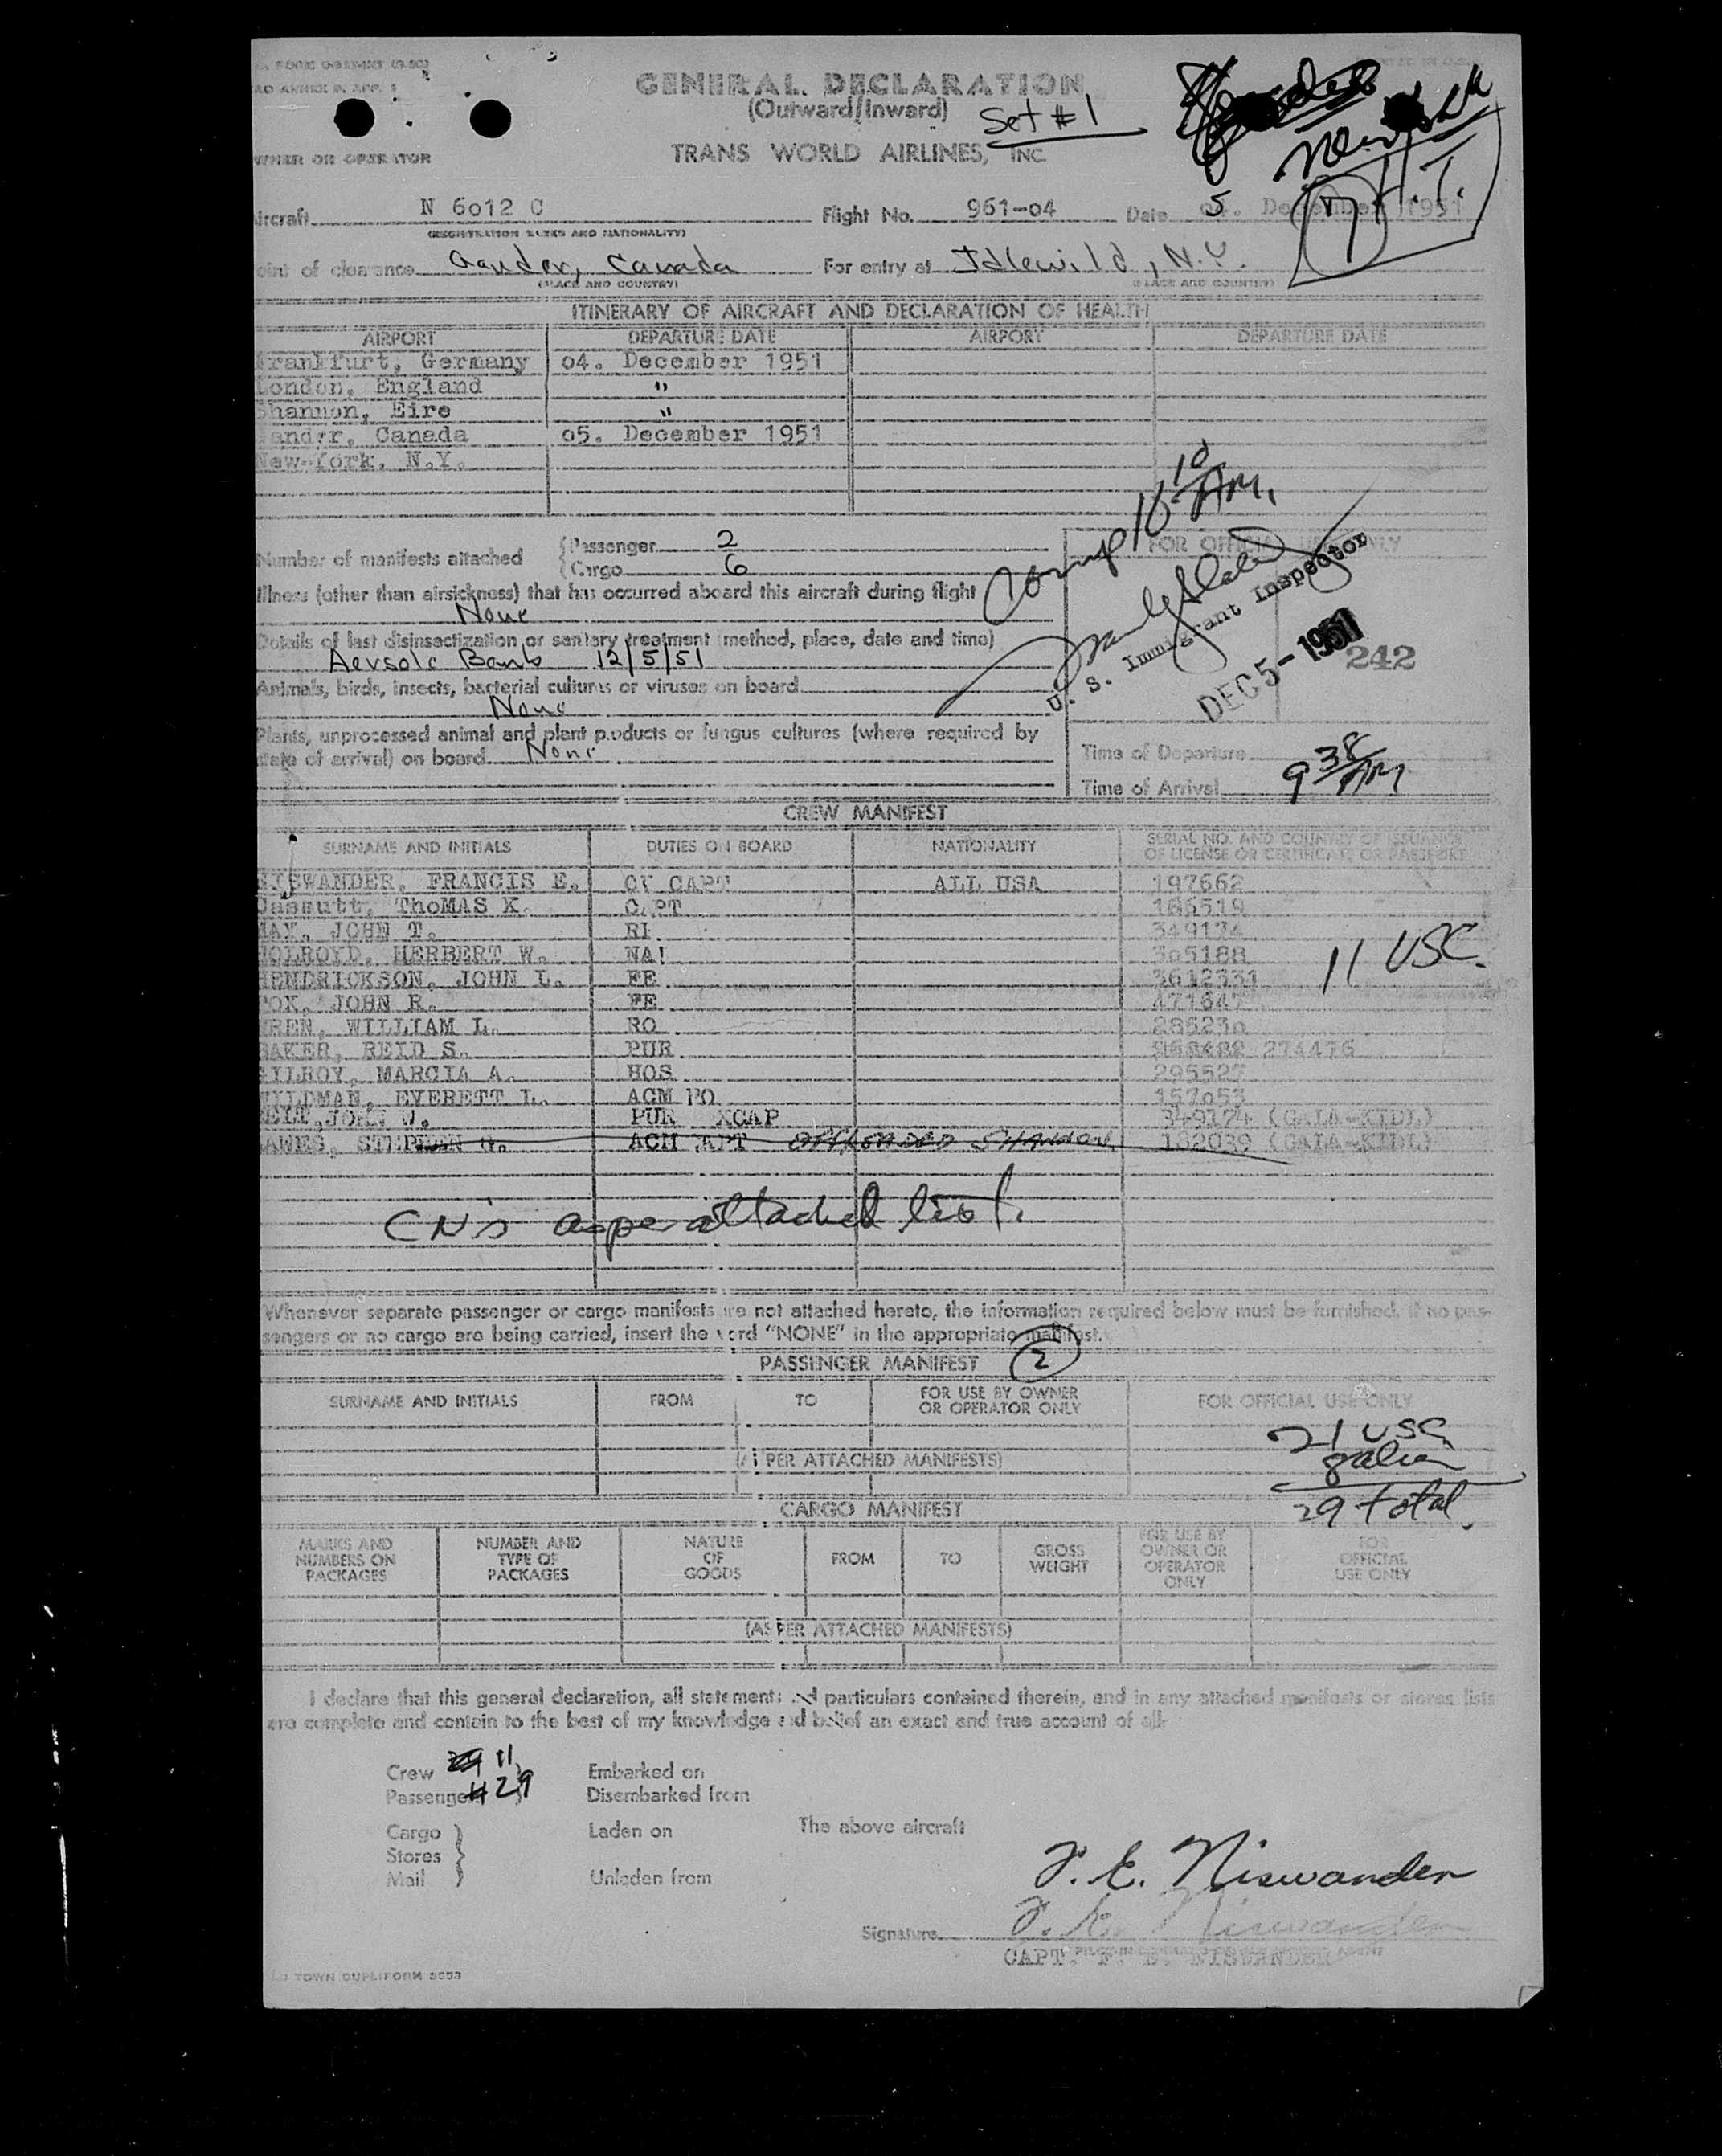 GENERAL DECLARATION
(Outward/Inward)
Set #1
OWNER OR OPERATOR
TRANS WORLD AIRLINES, INC.
ircraft N 6012 C Flight No. 961-04 Date 5 December 1951
(REGISTRATION MARKS AND NATIONALITY)
oint of clearance Gander, Canada For entry at Idlewild, N.Y.
(PLACE AND COUNTRY) (PLACE AND COUNTRY)
ITINERARY OF AIRCRAFT AND DECLARATION OF HEALTH
AIRPORT DEPARTURE DATE AIRPORT DEPARTURE DATE
Frankfurt, Germany 04. December 1951
London, England "
Shannon, Eire "
ander, Canada 05. December 1951
New-York, N.Y.
10 10 AM.
Number of manifests attached Passenger 2
Cargo 6
FOR OFFICIAL USE ONLY
Illness (other than airsickness) that has occurred aboard this aircraft during flight
None
Details of last disinsectization or sanitary treatment (method, place, date and time)
Aersole Bomb 12/5/51
U. S. Immigrant Inspector
DEC 5 - 1951
242
Animals, birds, insects, bacterial cultures or viruses on board
None
Plants, unprocessed animal and plant products or fungus cultures (where required by
state of arrival) on board None
Time of Departure
Time of Arrival 9 38 AM
CREW MANIFEST
SURNAME AND INITIALS DUTIES ON BOARD NATIONALITY SERIAL NO. AND COUNTRY OF ISSUANCE
OF LICENSE OR CERTIFICATE OR PASSPORT
NISWANDER, FRANCIS E. CAPT ALL USA 197662
Cassutt, ThoMAS K. CAPT 166519
MAY, JOHN T. RI 349174
HOLROYD, HERBERT W. NA! 305188
HENDRICKSON, JOHN L. FE 3612331
11 USC.
FOX, JOHN R. FE 471647
WREN, WILLIAM L. RO 286230
BAKER, REID S. PUR 274476
GILROY, MARCIA A. HOS 295527
WILDMAN, EVERETT L. ACM FO 157053
BELT, JOHN W. PUR XCAP 349174 (GAIA-KIDL)
STEPHEN G. ACM CAPT OFFLOADED SHANNON 182039 (GAIA-KIDL)
CN's as per attached list.
Whenever separate passenger or cargo manifests are not attached hereto, the information required below must be furnished. If no pas-
sengers or no cargo are being carried, insert the word "NONE" in the appropriate manifest.
PASSENGER MANIFEST 2
SURNAME AND INITIALS FROM TO FOR USE BY OWNER
OR OPERATOR ONLY FOR OFFICIAL USE ONLY
21 USC
(AS PER ATTACHED MANIFESTS)
8 alien
29 total.
CARGO MANIFEST
MARKS AND
NUMBERS ON
PACKAGES NUMBER AND
TYPE OF
PACKAGES NATURE
OF
GOODS FROM TO GROSS
WEIGHT FOR USE BY
OWNER OR
OPERATOR
ONLY FOR
OFFICIAL
USE ONLY
(AS PER ATTACHED MANIFESTS)
I declare that this general declaration, all statements and particulars contained therein, and in any attached manifests or stores lists
are complete and contain to the best of my knowledge and belief an exact and true account of all
Crew 11 Embarked on
Passengers 29 Disembarked from
Cargo Laden on The above aircraft
Stores
Mail Unladen from
F. E. Niswander
Signature F. E. Niswander
CAPT. F. E. NISWANDER
TOWN DUPLIFORM